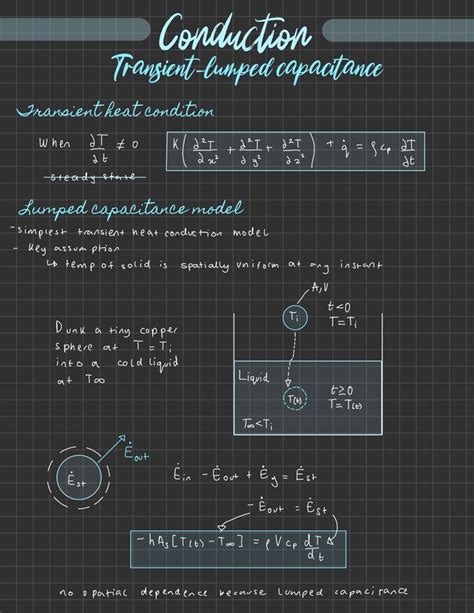 Conduction
Transient-lumped capacitance
Transient heat condition
When ∂T/∂t ≠ 0
K(∂²T/∂x² + ∂²T/∂y² + ∂²T/∂z²) + q̇ = ρcp ∂T/∂t
steady state
Lumped capacitance model
-simplest transient heat conduction model
- Key assumption
↳ temp of solid is spatially uniform at any instant
A,V
Ti
t<0
T=Ti
Dunk a tiny copper
sphere at T=Ti
into a cold liquid
at T∞
Liquid
T(t)
t≥0
T=T(t)
T∞<Ti
Ėout
Ėst
Ėin - Ėout + Ėg = Ėst
- Ėout = Ėst
-hAs[T(t)-T∞] = ρVcp dT/dt
no spatial dependence because lumped capacitance